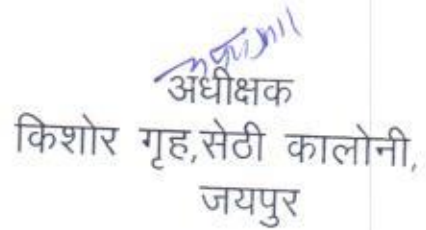 अधीक्षक
किशोर गृह,सेठी कालोनी,
जयपुर